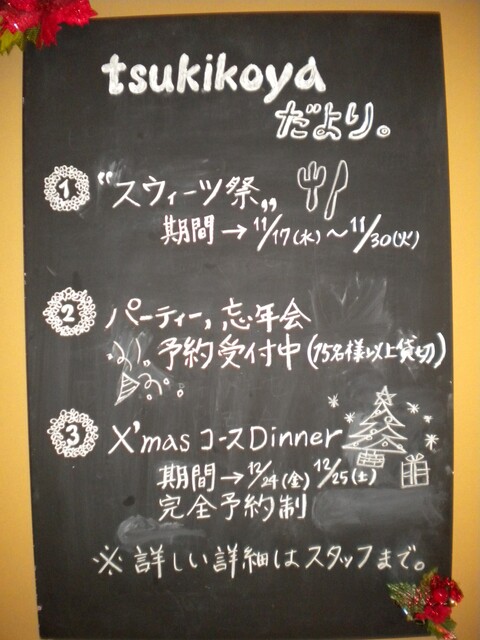 tsukikoya
だより。
1 “スウィーツ祭„
期間→11/17(水)～11/30(火)
2 パーティー, 忘年会
予約受付中(15名様以上貸切)
3 X'mas コースDinner
期間→12/24(金) 12/25(土)
完全予約制
※ 詳しい詳細はスタッフまで。